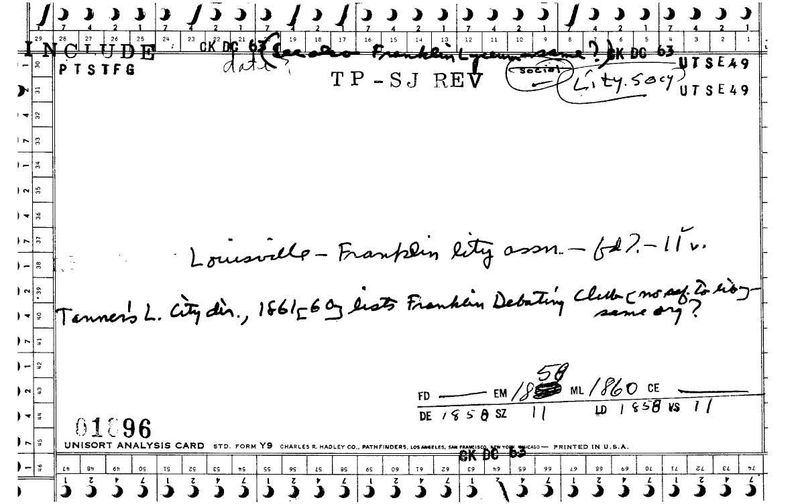 INCLUDE CK DC 63 (see also Franklin Lyceum same?) CK DC 63
PTSTFG date? TP-SJ REV social Lity. Socy UTSE49
UTSE49
Louisville - Franklin lity assn. - fd?. - 11 v.
Tanner's L. City dir., 1861[60] lists Franklin Debating Club [no ref. to liby -
same org?
58
FD EM 18 ML 1860 CE
DE 1858 SZ 11 LD 1858 VS 11
01896
UNISORT ANALYSIS CARD STD. FORM Y9 CHARLES R. HADLEY CO., PATHFINDERS, LOS ANGELES, SAN FRANCISCO, NEW YORK, CHICAGO — PRINTED IN U.S.A.
CK DC 63